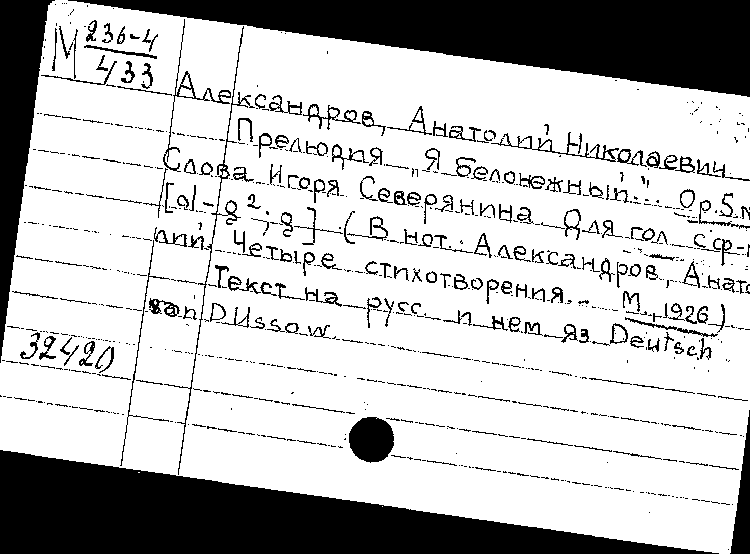 М 236-4
433
Александров, Анатолий Николаевич
Прелюдия „Я белоснежный..." Ор.5.N
Слова Игоря Северянина. Для гол. с ф-п
[a1-g2; g] (В нот.: Александров, Анато
лий. Четыре стихотворения... М., 1926)
Текст на русс. и нем. яз. Deutsch
von D. Ussow
32420